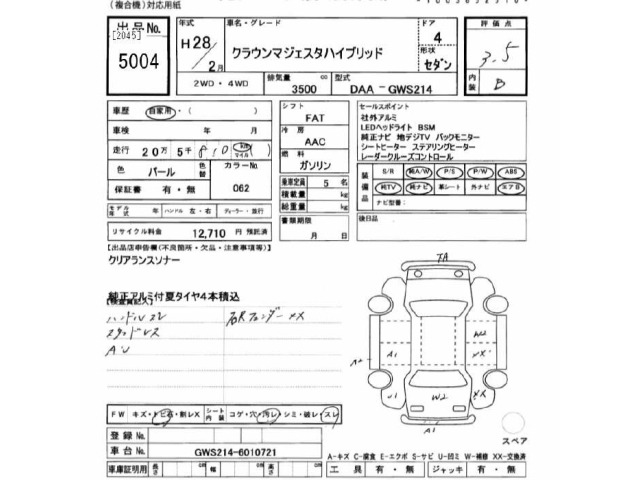 (複合機)対応用紙
出品No.
[2045]
5004
年式
H28/2月
車名・グレード
クラウンマジェスタハイブリッド
ドア
4
形状
セダン
評価点
3.5
内装
B
2WD・4WD
排気量
3500
cc
型式
DAA－GWS214
車歴
自家用・( )
車検 年 月
走行 20万5千
マイル
色 パール
色替
カラーNo.
062
保証書 有・無
シフト
FAT
冷房
AAC
燃料
ガソリン
乗車定員 5 名
積載量 kg
総重量 kg
セールスポイント
社外アルミ
LEDヘッドライト BSM
純正ナビ 地デジTV バックモニター
シートヒーター ステアリングヒーター
レーダークルーズコントロール
装備品
S/R 純A/W P/S P/W ABS
純TV 純ナビ 革シート 外ナビ エアB
ナビ型番:
モデル年式 年 ハンドル 左・右 ディーラー・並行
リサイクル料金 12,710 円 預託済
書類期限
月 日
後日品
【出品店申告欄(不良箇所・欠品・注意事項等)】
クリアランスソナー
純正アルミ付夏タイヤ4本積込
【検査員記入】
ハンドルスレ
右Rフェンダー XX
スタッドレス
AU
FW キズ・トビ石・削レX
シート内装
コゲ・穴・汚レ・シミ・破レ・スレ
登録No.
車台No.
GWS214-6010721
車庫証明用 長さ cm 幅 cm 高さ cm
A1
W2
XX
A1
W2
XX
A1
スペア
A-キズ C-腐食 E-エクボ S-サビ U-凹ミ W-補修 XX-交換済
工具 有・無 ジャッキ 有・無